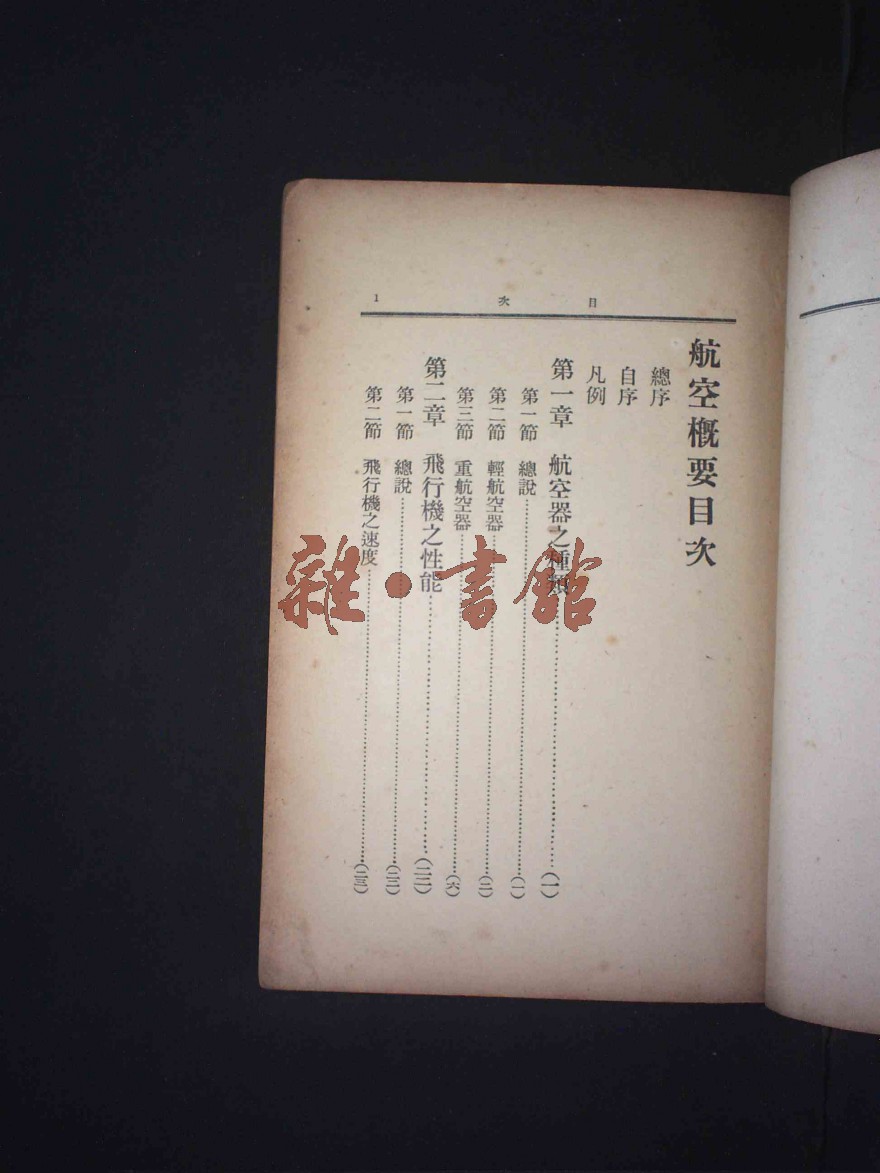 目次
1
航空概要目次
總序
自序
凡例
第一章 航空器之種類……(一)
第一節 總說……(一)
第二節 輕航空器……(二)
第三節 重航空器……(六)
第二章 飛行機之性能……(二二)
第一節 總說……(二二)
第二節 飛行機之速度……(二三)
雜·書館